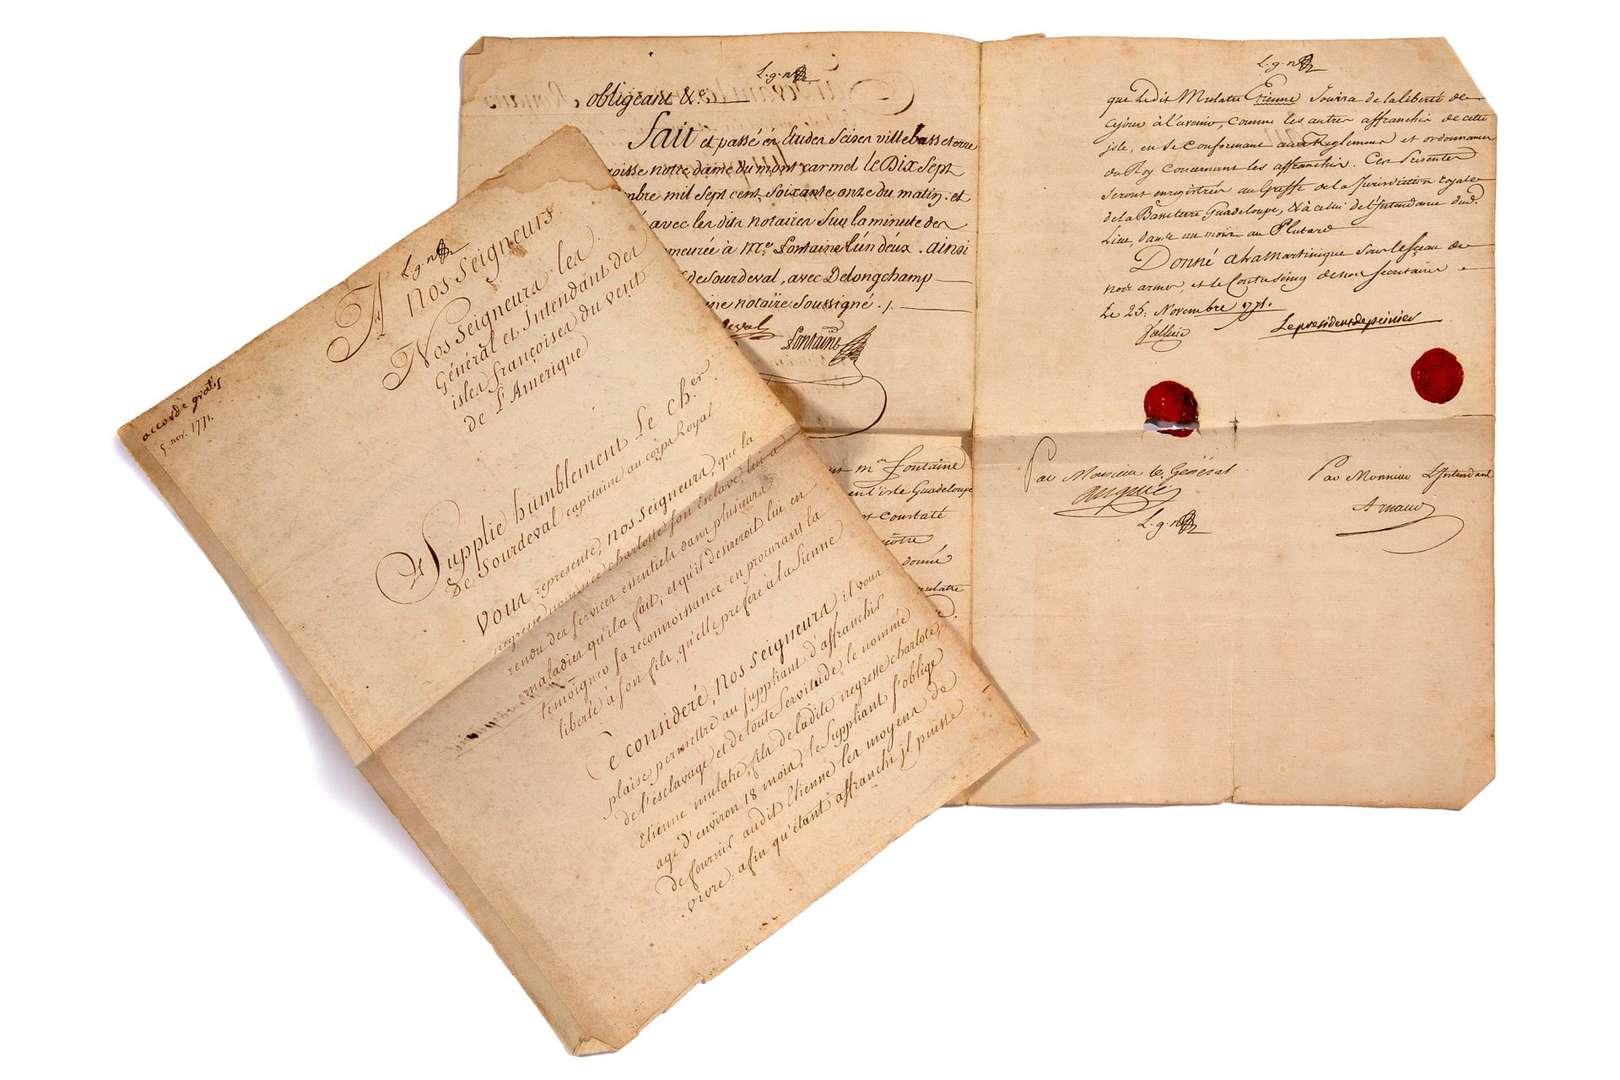 accordé gratis
5 nov. 1771.
A nosseigneurs
Nosseigneurs les
Général et Intendant des
isles françoises du vent
de L'Amerique
Supplie humblement Le ch.er
de Sourdeval capitaine au corps Royal
vous represente, nos seigneurs, que la
negresse nommée charlotte son esclave, lui a
rendu des services essentiels dans plusieurs
maladies qu'il a fait, et qu'il desireroit lui en
temoigner sa reconnoissance en procurant la
liberté à son fils, qu'elle prefere à la sienne
Ce consideré, nos seigneurs, il vous
plaise permettre au suppliant d'affranchir
de l'esclavage et de toute servitude le nommé
Etienne mulatre, fils de ladite negresse charlote,
agé d'environ 18 mois, le suppliant s'oblige
de fournir audit Etienne les moyens de
vivre: afin qu'étant affranchi il puisse
obligeant &a
fait et passé en Etudes Seizes ville basseterre
paroisse notre dame du mont carmel le Dix Sept
mbre mil sept cent soixante onze du matin et
avec les dits notaires Sur la minute des
meurée à Me. fontaine l'un deux. ainsi
de Sourdeval, avec Delongchamp
notaire Soussigné ./.
deval fontaine
mr. fontaine
en l'isle Guadeloupe
constaté
notre
donné
mulatre
que Ledit Mulatre Etienne Jouira de la liberté de
cejour à l'avenir, comme les autres affranchis de cette
isle, en se conformant aux Reglemens et ordonnances
du Roy concernant les affranchis. Ces Presentes
seront enregistrées au Greffe de la Jurisdiction royale
de la Basseterre Guadeloupe, & à celui de l'Intendance dud.
Lieu, dans un mois au Plutard
Donné à la Martinique sous le sceau de
nos armes, et le Contreseing de nos secretaires
le 25. Novembre 1771.
Valliere Le president de peinier
Par Monsieur le Général
Par Monsieur L'Intendant
Arnaud